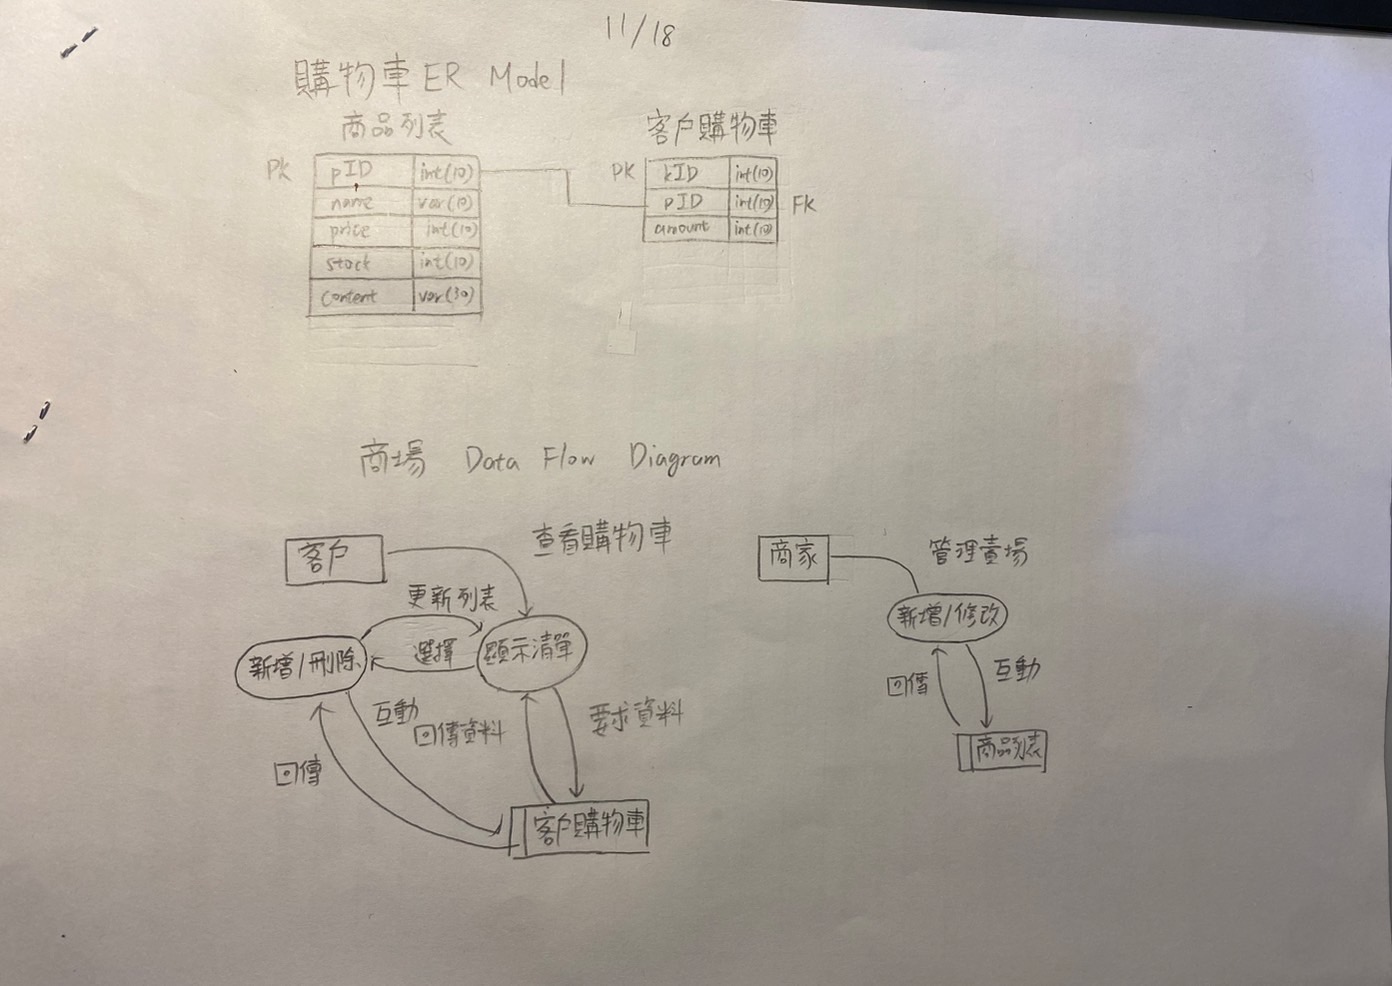 11/18
購物車 ER Model
商品列表
PK
pID int(10)
name var(10)
price int(10)
stock int(10)
content var(30)
客戶購物車
PK
kID int(10)
pID int(10) FK
amount int(10)
商場 Data Flow Diagram
查看購物車
客戶
更新列表
新增/刪除
選擇
顯示清單
互動
回傳資料
要求資料
回傳
客戶購物車
商家
管理賣場
新增/修改
回傳
互動
商品列表